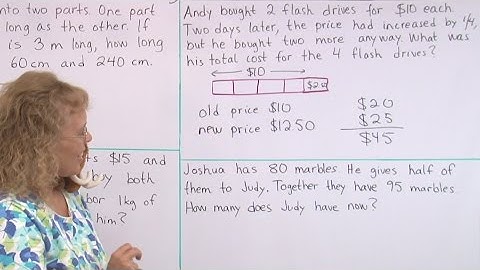 nto two parts. One part
long as the other. If
is 3 m long, how long
60 cm and 240 cm.
Andy bought 2 flash drives for $10 each.
Two days later, the price had increased by 1/4,
but he bought two more anyway. What was
his total cost for the 4 flash drives?
$10
old price $10
new price $12.50
$20
$25
$45
ts $15 and
buy both
bor 1kg of
him?
Joshua has 80 marbles. He gives half of
them to Judy. Together they have 95 marbles
How many does Judy have now?